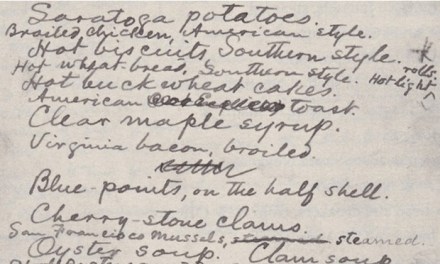 Saratoga potatoes.
Broiled chicken, American style.
Hot biscuits, Southern style.
Hot wheat-bread, Southern style. Hot light rolls.
Hot buckwheat cakes.
American toast.
Clear maple syrup.
Virginia bacon, broiled.
Blue-points, on the half shell.
Cherry-stone clams.
San Francisco mussels, steamed.
Oyster soup. Clam soup.